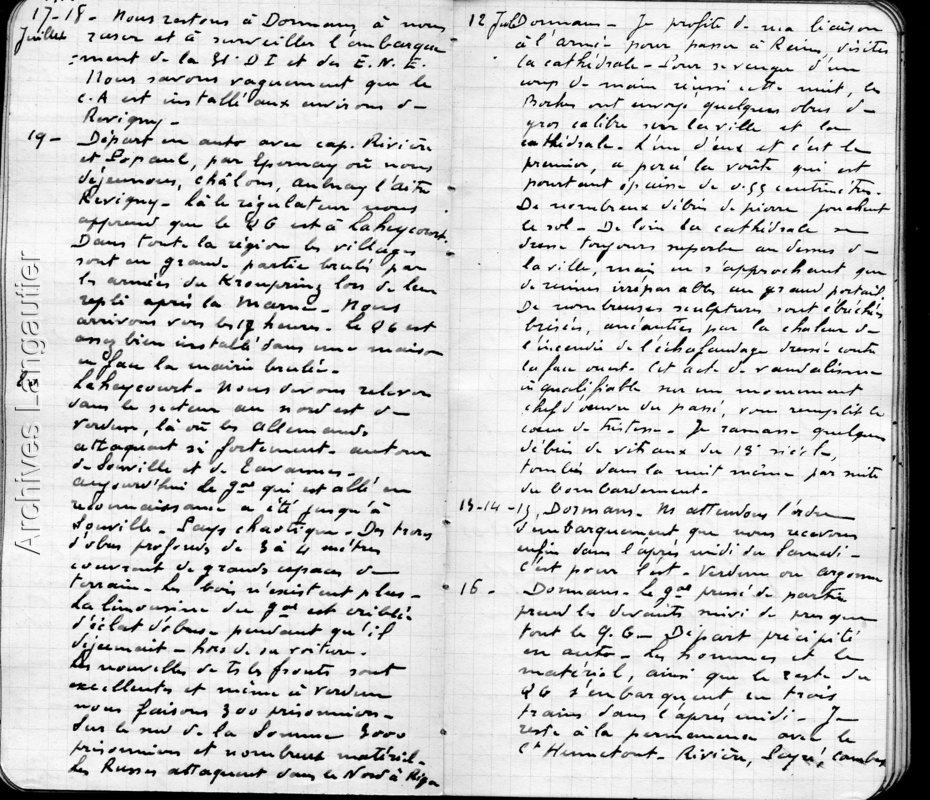 17-18 - Nous restons à Dormans à nous
Juillet raser et à surveiller l'embarque
ment de la DI et des E.N.E.
Nous savons vaguement que le
C.A est installé aux environs de
Revigny -
19 - Départ en auto avec cap. Rivière
et Lopaul, par Epernay où nous
déjeunons, châlons, aubnay l'aitre
Revigny - là le régulateur nous
apprend que le QG est à Laheycourt.
Dans toute la région les villages
sont en grande partie brulés par
les armées du Kronprinz lors de leur
repli après la Marne - Nous
arrivons vers les heures - le QG est
assez bien installé dans une maison
en face la mairie brulée -
Laheycourt - Nous devons relever
dans le secteur au nord est de
Verdun, là où les Allemands
attaquent si fortement autour
de Souville et de Tavannes -
aujourd'hui le gal qui est allé en
reconnaissance a été jusqu'à
Souville - Pays chaotique - Des trous
d'obus profonds de 3 à 4 mètres
couvrent de grands espaces de
terrain - Les bois n'existent plus -
La limousine du gal est criblée
d'éclat d'obus - pendant qu'il
déjeunait - hors de sa voiture -
Les nouvelles de ts les fronts sont
excellentes et même à Verdun
nous faisons 300 prisonniers -
Sur le sud de la Somme 3000
prisonniers et nombreux matériel -
Les Russes attaquent dans le Nord à Riga
12 Juil Dormans - Je profite de ma liaison
à l'armée pour passer à Reims, visiter
la cathédrale - Pour se venger d'un
coup de main réussi cette nuit, les
Boches ont envoyé quelques obus de
gros calibre sur la ville et la
cathédrale - L'un d'eux et c'est le
premier, a percé la voûte qui est
pourtant épaisse de centimètres.
De nombreux débris de pierre jonchent
le sol - De loin la cathédrale se
dresse toujours superbe au dessus de
la ville, mais en s'approchant que
de ruines irréparables au grand portail
De nombreuses sculptures sont ébréchées
brisées, anéanties par la chaleur de
l'incendie de l'échafaudage dressé contre
la face ouest. Cet acte de vandalisme
inqualifiable sur un monument
chef d'œuvre du passé, vous remplit le
cœur de tristesse - Je ramasse quelques
débris de vitraux du 13e siècle,
tombés dans la nuit même par suite
du bombardement -
13-14-15, Dormans - Ns attendons l'ordre
d'embarquement que nous recevons
enfin dans l'après midi du Samedi -
c'est pour l'est - Verdun ou Argonne
16 - Dormans - Le gal pressé de partir
prend les devants suivi de presque
tout le Q.G - Départ précipité
en auto - Les hommes et le
matériel, ainsi que le reste du
QG s'embarquent en trois
trains dans l'après midi - Je
reste à la permanence avec le
Ct - Rivière,
Archives Langautier